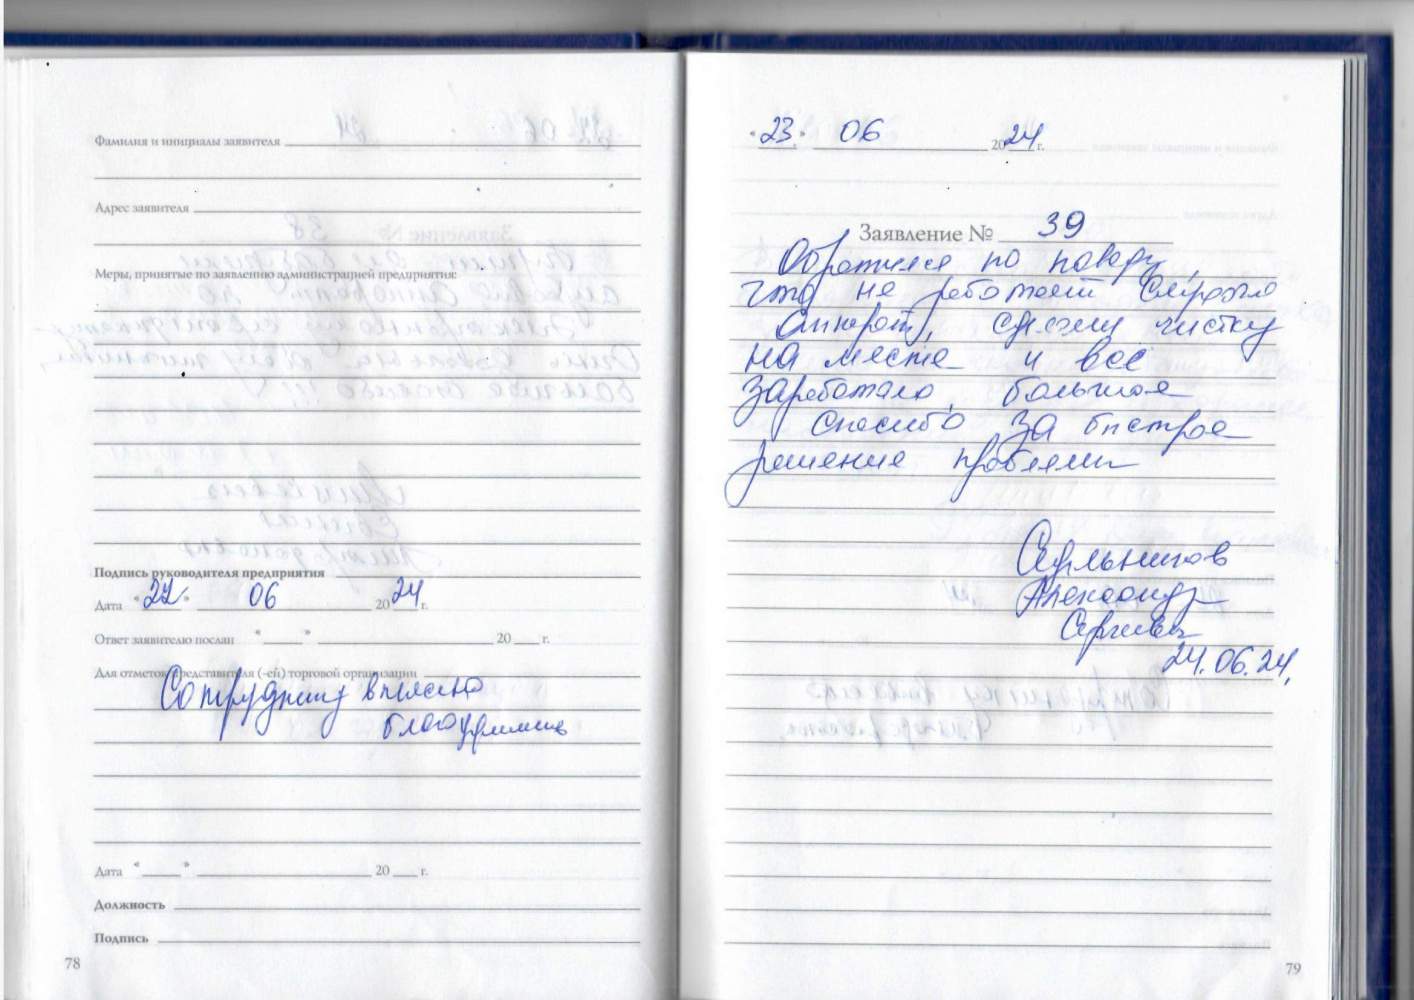 Фамилия и инициалы заявителя
Адрес заявителя
Меры, принятые по заявлению администрацией предприятия:
Подпись руководителя предприятия
Дата "22" 06 2024 г.
Ответ заявителю послан " " 20 г.
Для отметок представителя (-ей) торговой организации
Сотруднику внесена
благодарность
Дата " " 20 г.
Должность
Подпись
78
"23" 06 2024 г.
Заявление № 39
Обратился по поводу
что не работает слуховой
аппарат, сделали чистку
на месте и всё
заработало, большое
спасибо за быстрое
решение проблемы
Александр
Сергеевич
24.06.24.
79